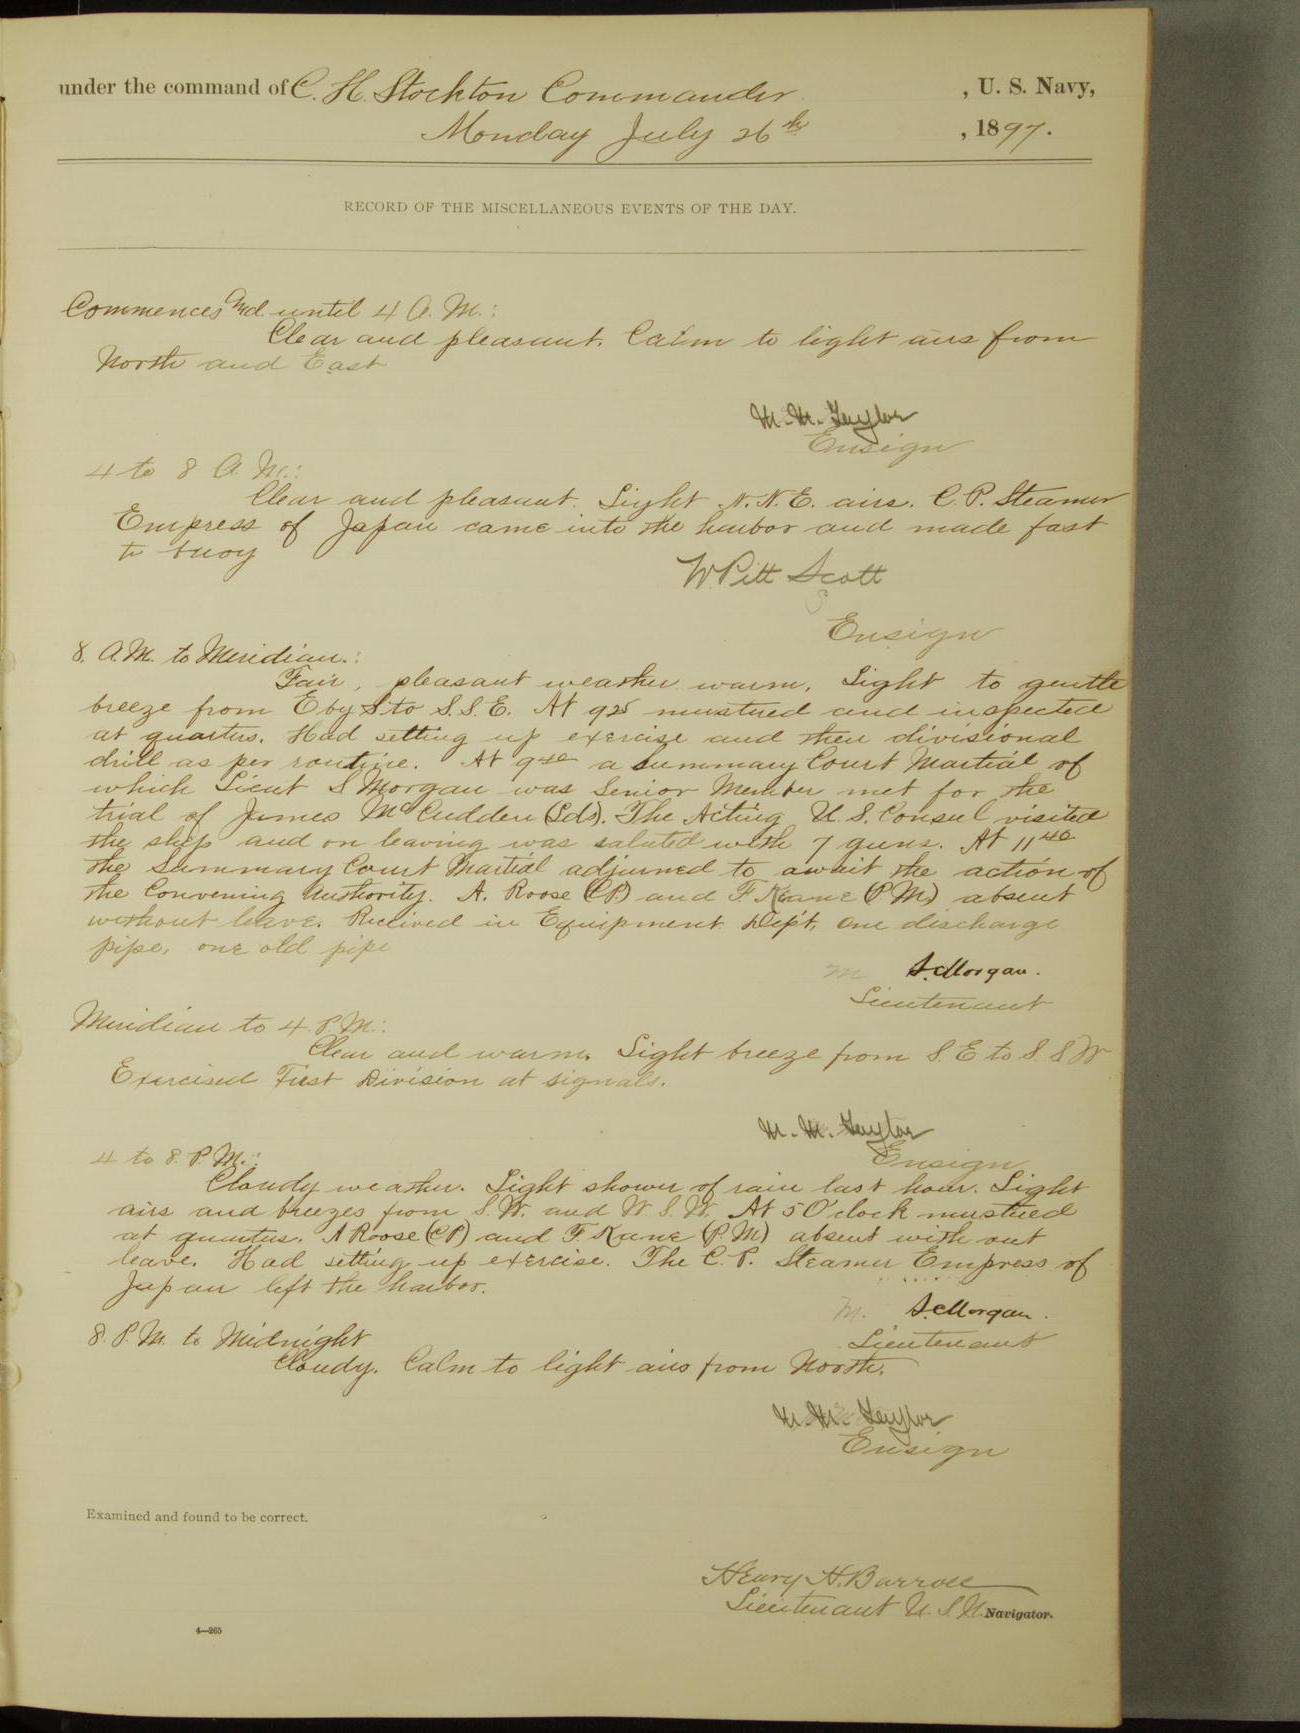 under the command of C. H. Stockton Commander , U. S. Navy,
Monday July 26th , 1897.
RECORD OF THE MISCELLANEOUS EVENTS OF THE DAY.
Commences and until 4 A. M.:
Clear and pleasant. Calm to light airs from
North and East
M. M. Taylor
Ensign
4 to 8 A. M.:
Clear and pleasant. Light N.N.E. airs. C. P. Steamer
Empress of Japan came into the harbor and made fast
to buoy
W. Pitt Scott
Ensign
8. A.M. to Meridian.:
Fair, pleasant weather warm. Light to gentle
breeze from E by S to S.S.E. At 9 25 mustered and inspected
at quarters. Had setting up exercise and then divisional
drill as per routine. At 9 40 a Summary Court Martial of
which Lieut S Morgan was Senior Member met for the
trial of James McCudden (Lds). The Acting U. S. Consul visited
the ship and on leaving was saluted with 7 guns. At 11 40
the Summary Court Martial adjurned to await the action of
the Convening Authority. A. Roose (CP) and F Kane (P.M.) absent
without leave. Received in Equipment Dep't. one discharge
pipe, one old pipe
S. Morgan.
Lieutenant
Meridian to 4 P.M.:
Clear and warm. Light breeze from S. E to S. S W
Exercised First Division at signals.
M. M. Taylor
Ensign
4 to 8. P. M.:
Cloudy weather. Light shower of rain last hour. Light
airs and breezes from S. W. and W. S. W. At 5 O'clock mustered
at quarters. A Roose (CP) and F. Kane (P.M) absent with out
leave. Had setting up exercise. The C. P. Steamer Empress of
Japan left the harbor.
S. Morgan.
Lieutenant
8. P.M. to Midnight
Cloudy. Calm to light airs from North.
M. M. Taylor
Ensign
Examined and found to be correct.
Henry H. Barroll
Lieutenant U. S. N. Navigator.
4—265